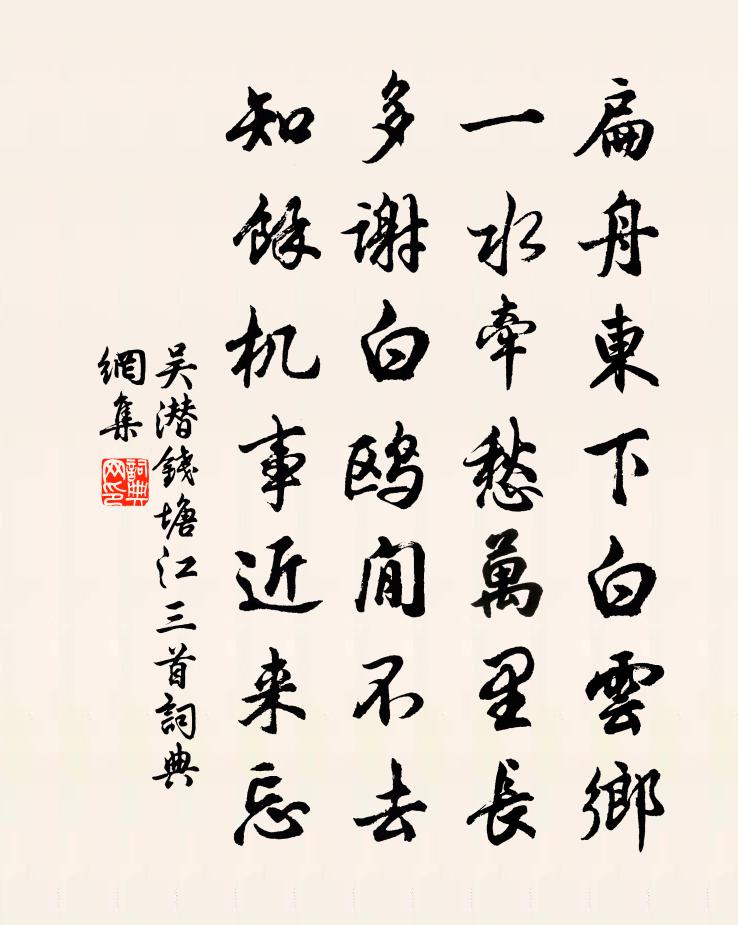 扁舟東下白雲鄉
一水牽愁萬里長
多謝白鷗閒不去
知餘机事近来忘
吳潜錢塘江三首詞典
網集
詞典
网印